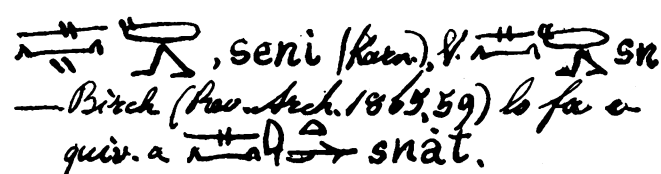 , seni (Karn.), V. sn
— Birch (Rev. Arch. 1865, 59) lo fa e-
quiv. a snàt.